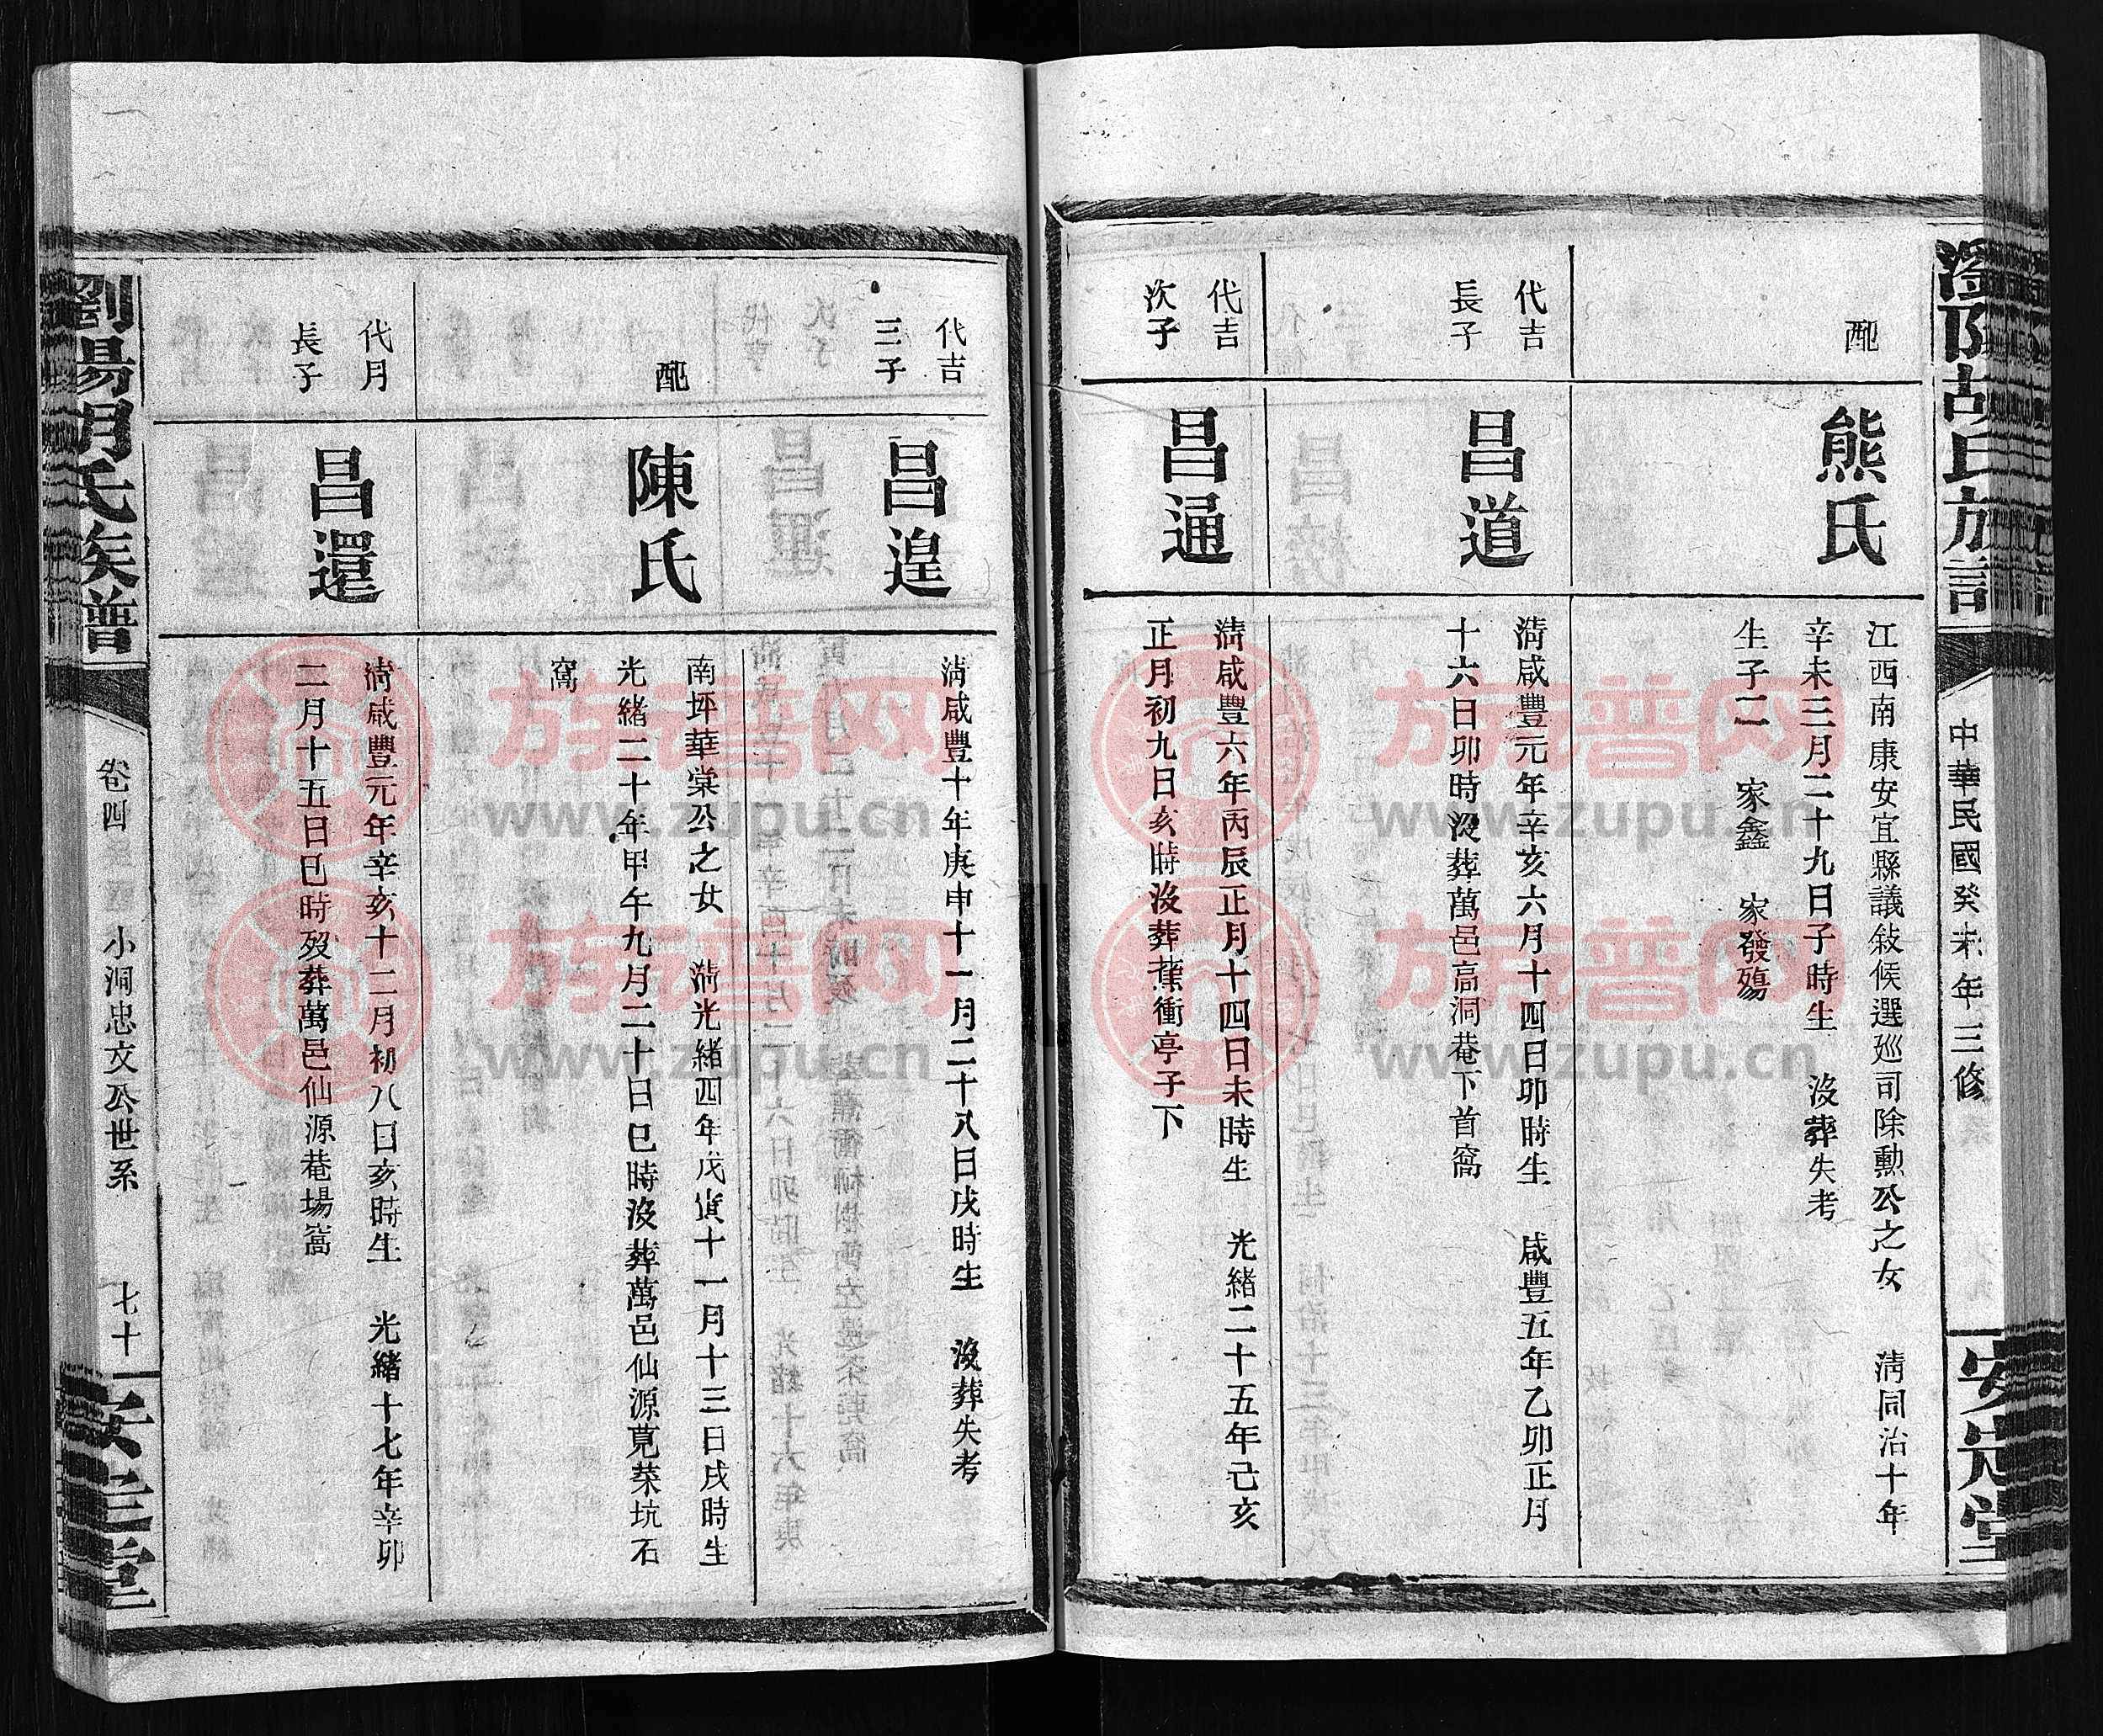 瀏陽胡氏族譜
中華民國癸未年三修
安定堂
配
熊氏
江西南康安宜縣議敍候選廵司除勳公之女 淸同治十年
辛未三月二十九日子時生 沒葬失考
生子二 家鑫 家發殤
代吉
長子
昌道
淸咸豐元年辛亥六月十四日卯時生 咸豐五年乙卯正月
十六日卯時沒葬萬邑高洞菴下首窩
代吉
次子
昌通
淸咸豐六年丙辰正月十四日未時生 光緒二十五年己亥
正月初九日亥時沒葬蕉衝亭子下
代吉
三子
昌遑
淸咸豐十年庚申十一月二十八日戌時生 沒葬失考
配
陳氏
南坪華棠公之女 淸光緒四年戊寅十一月十三日戌時生
光緒二十年甲午九月二十日巳時沒葬萬邑仙源莧菜坑石
窩
代月
長子
昌還
淸咸豐元年辛亥十二月初八日亥時生 光緒十七年辛卯
二月十五日巳時歿葬萬邑仙源菴場窩
瀏陽胡氏族譜
卷四
小洞忠文公世系
七十
安定堂
族谱网
www.zupu.cn
族谱网
www.zupu.cn
族谱网
www.zupu.cn
族谱网
www.zupu.cn